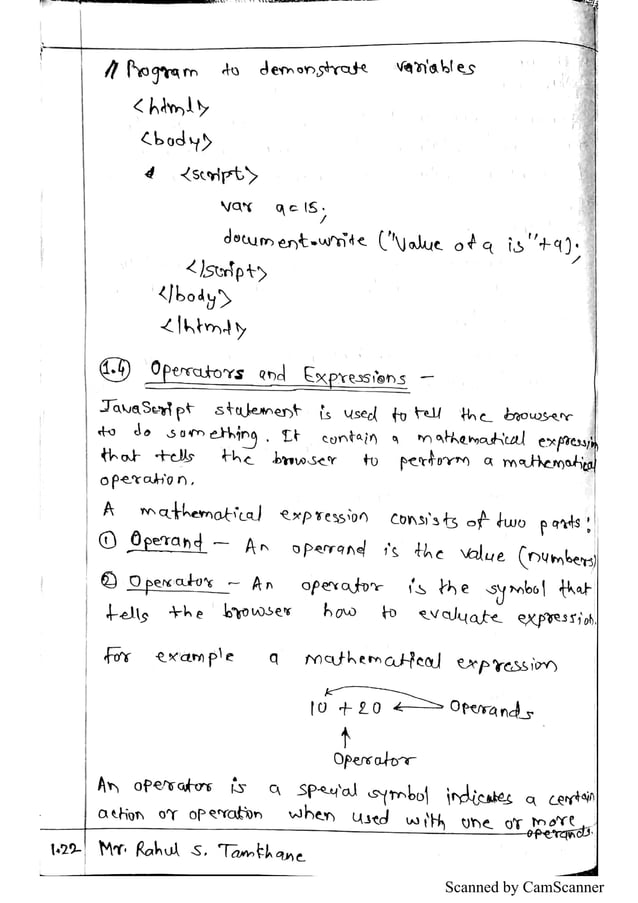 // Program to demonstrate variables
<html>
<body>
<script>
var a=15;
document.write ("Value of a is"+a);
</script>
</body>
</html>
1.4 Operators and Expressions -
JavaScript statement is used to tell the browser
to do something. It contain a mathematical expression
that tells the browser to perform a mathematical
operation.
A mathematical expression consists of two parts:
① Operand - An operand is the value (numbers)
② Operator - An operator is the symbol that
tells the browser how to evaluate expression.
For example a mathematical expression
10 + 20 ← Operands
↑
Operator
An operator is a special symbol indicates a certain
action or operation when used with one or more
operands.
1.22 Mr. Rahul S. Tamkhane
Scanned by CamScanner